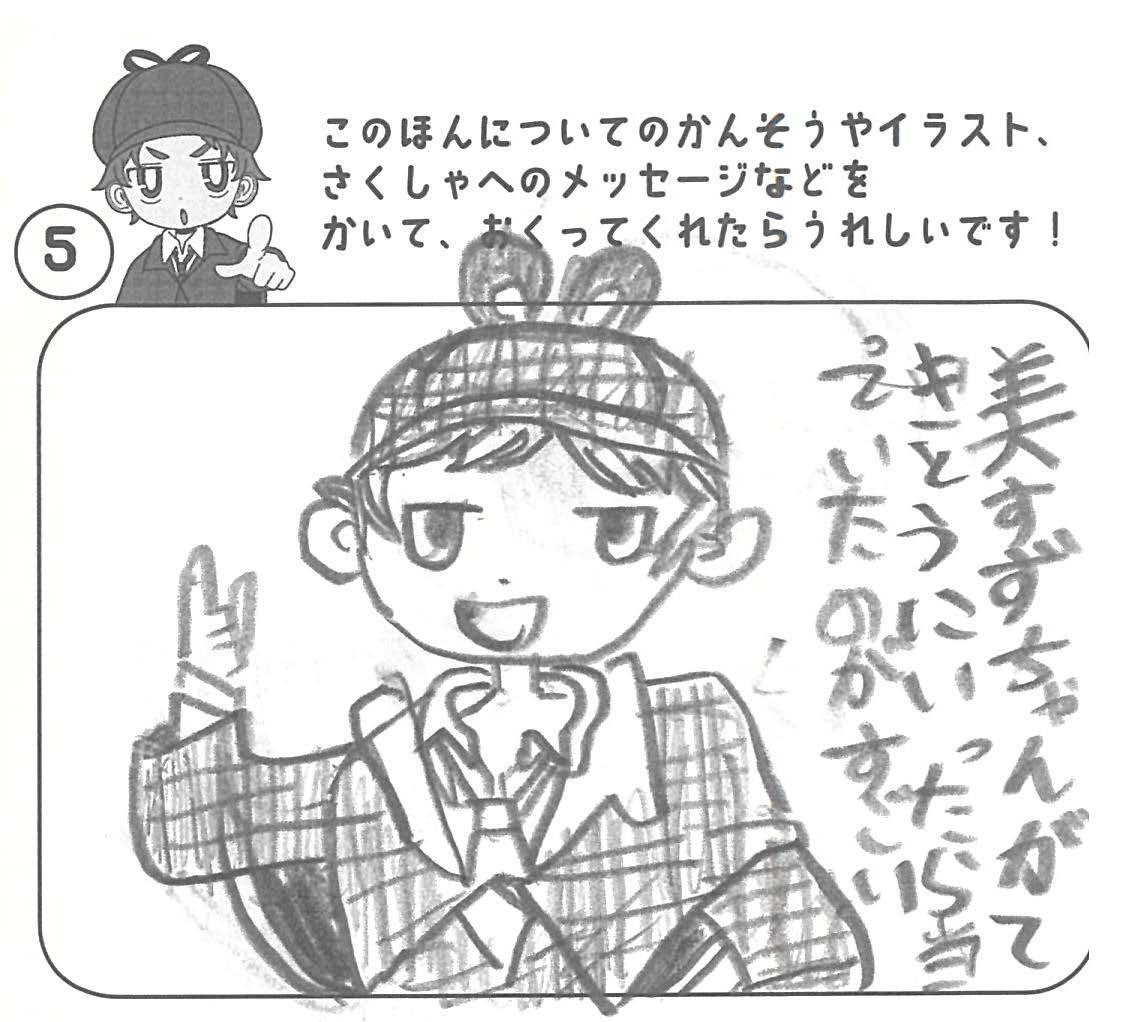 5
このほんについてのかんそうやイラスト、
さくしゃへのメッセージなどを
かいて、おくってくれたらうれしいです！
美すずちゃんがて
きとうにいったら当
ていたのがすごい